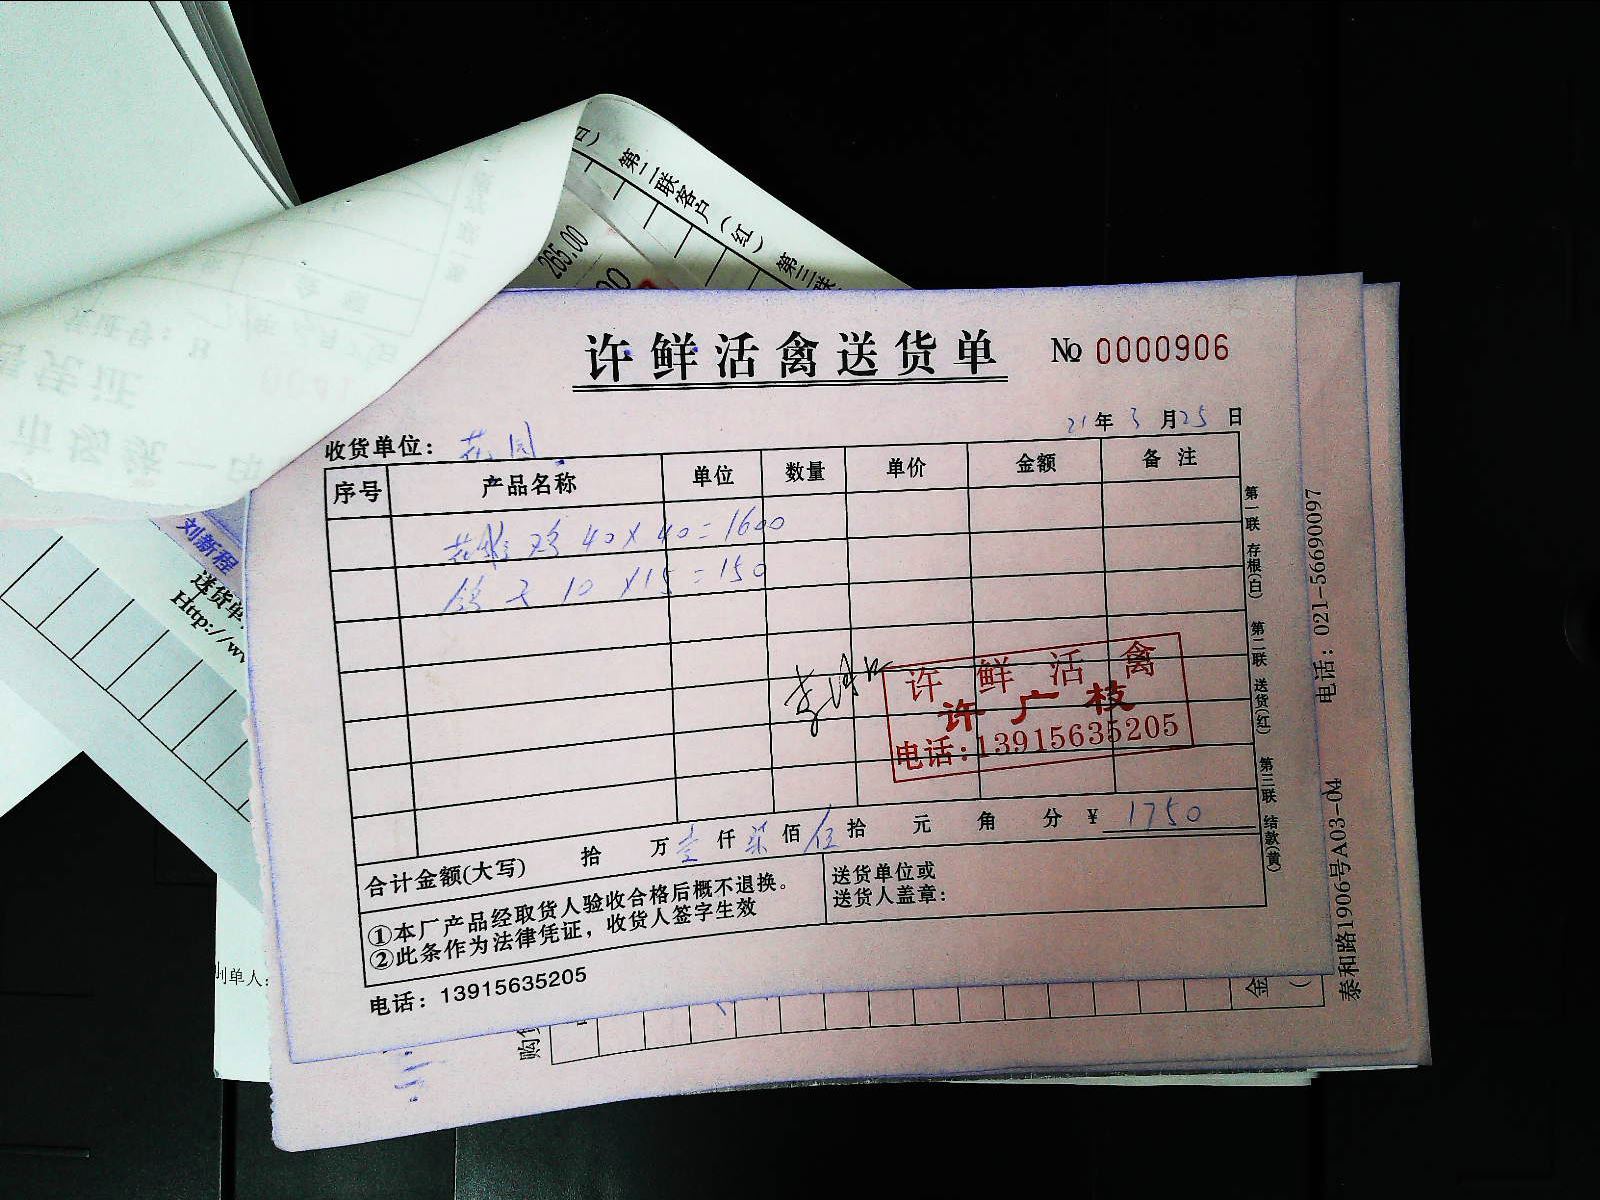 许鲜活禽送货单 № 0000906
21年3月25日
收货单位：花园
序号 产品名称 单位 数量 单价 金额 备注
鸡 40×40=1600
10×15=150
许鲜活禽
许广枝
电话:13915635205
合计金额(大写) 拾 万 壹 仟 柒 佰 伍 拾 元 角 分 ¥ 1750
①本厂产品经取货人验收合格后概不退换。
②此条作为法律凭证，收货人签字生效
送货单位或
送货人盖章:
电话：13915635205
第一联 存根(白) 第二联 送货(红) 第三联 结款(黄)
泰和路1906号A03-04 电话：021-56690097
第二联客户（红）第三联
265.00
刘新程
送货单
Http://w
单人:
购
金